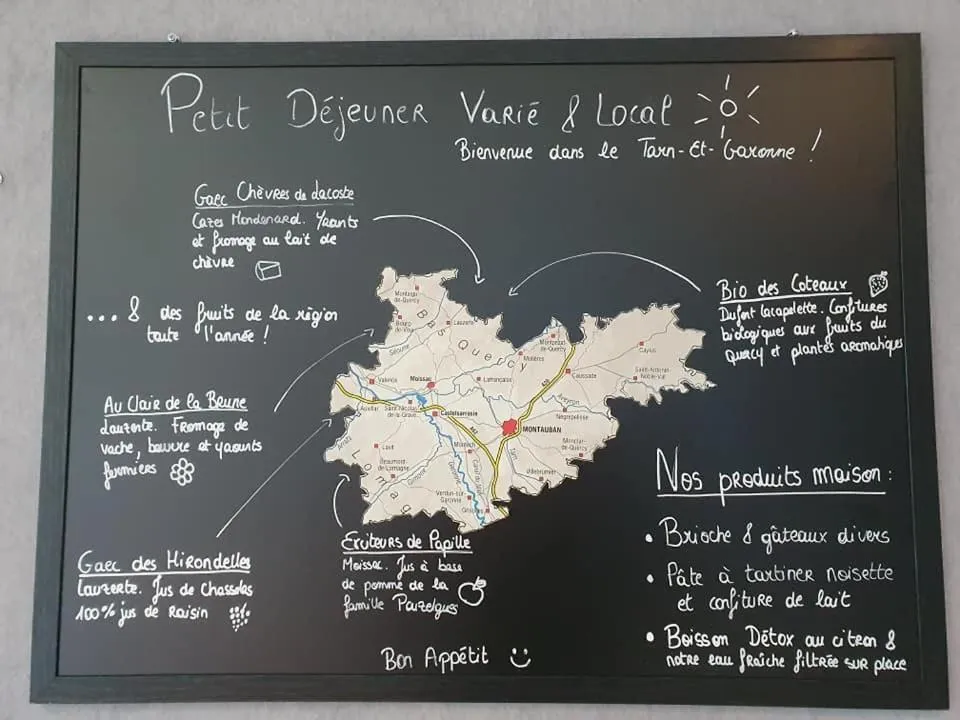 Petit Déjeuner Varié & Local
Bienvenue dans le Tarn-Et-Garonne !
Gaec Chèvres de Lacoste
Cazes Mondenard. Yaourts
et fromage au lait de
chèvre
... & des fruits de la région
toute l'année !
Bio des Coteaux
Dufort Lacapelette. Confitures
biologiques aux fruits du
Quercy et plantes aromatiques
Au Clair de la Beune
Lauzerte. Fromage de
vache, beurre et yaourts
fermiers
Gaec des Hirondelles
Lauzerte. Jus de Chasselas
100% jus de Raisin
Exciteurs de Papille
Moissac. Jus à base
de pomme de la
famille
Nos produits maison :
• Brioche & gâteaux divers
• Pâte à tartiner noisette
et confiture de lait
• Boisson Détox au citron &
notre eau fraîche filtrée sur place
Bon Appétit
Montaigu-
de-Quercy
Bas Quercy
Bourg-
de-Visa
Lauzerte
Séoune
Molières
Montpezat-
de-Quercy
Caylus
Caussade
Saint-Antonin-
Noble-Val
Valence
Moissac
Lafrançaise
A20
Auvillar
Saint-Nicolas-
de-la-Grave
Castelsarrasin
Aveyron
Nègrepelisse
MONTAUBAN
Arrats
Lomag
Lavit
Montech
Tarn
Monclar-
de-Quercy
Beaumont-
de-Lomagne
Gimone
Garonne
Canal du Midi
Villebrumier
Verdun-sur-
Garonne
Grisolles